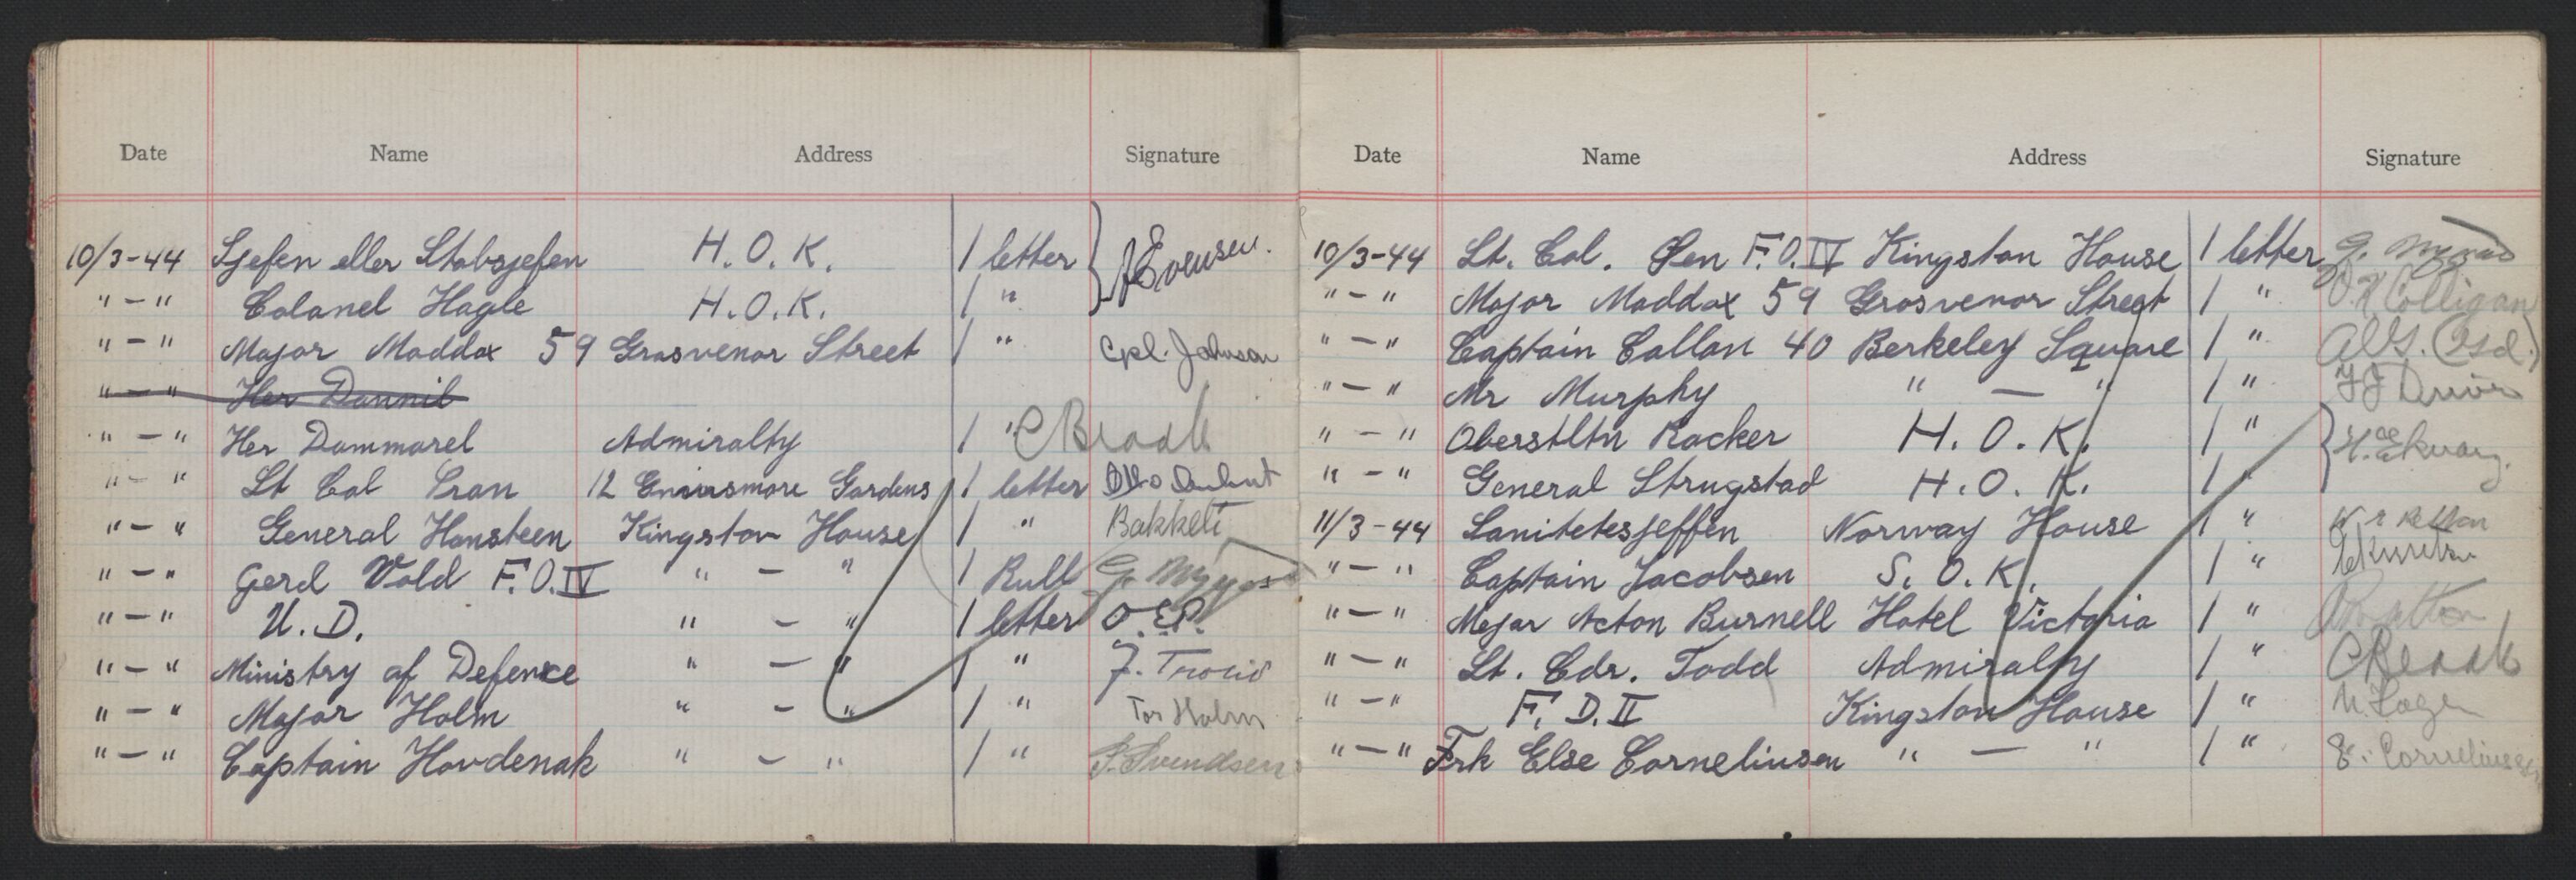 Date Name Address Signature
10/3-44 Sjefen eller Stabssjefen H.O.K. 1 letter } Evensen.
" — " Colonel Hagle H.O.K. 1 "
" — " Major Maddox 59 Grosvenor Street 1 " Cpl. Johnson
" — " Her Dannil
" — " Her Dammarel Admiralty 1 "
" — " Lt Col 12 Ennismore Gardens 1 letter
" — " General Hansteen Kingston House 1 " Bakkeli
" — " Gerd Vold F.O.IV " — " 1 Rull
" — " U.D. " — " 1 letter
" — " Ministry of Defence " — " 1 "
" — " Major Holm " — " 1 " Tor Holm
" — " Captain Hovdenak " — " 1 " S. Svendsen
Date Name Address Signature
10/3-44 Lt. Col. Øen F.O.IV Kingston House 1 letter
" — " Major Maddox 59 Grosvenor Street 1 " Colligan
" — " Captain Callan 40 Berkeley Square 1 "
" — " Mr Murphy " — " 1 "
" — " Oberstltn Rocker H.O.K. 1 " }
" — " General Strugstad H.O.K. 1 "
11/3-44 Sanitetesjeffen Norway House 1 "
" — " Captain Jacobsen S.O.K. 1 "
" — " Major Acton Burnell Hotel Victoria 1 "
" — " Lt. Cdr. Todd Admiralty 1 "
" — " F.D.II Kingston House 1 "
" — " Frk Else Corneliusen " — " 1 " E. Corneliussen